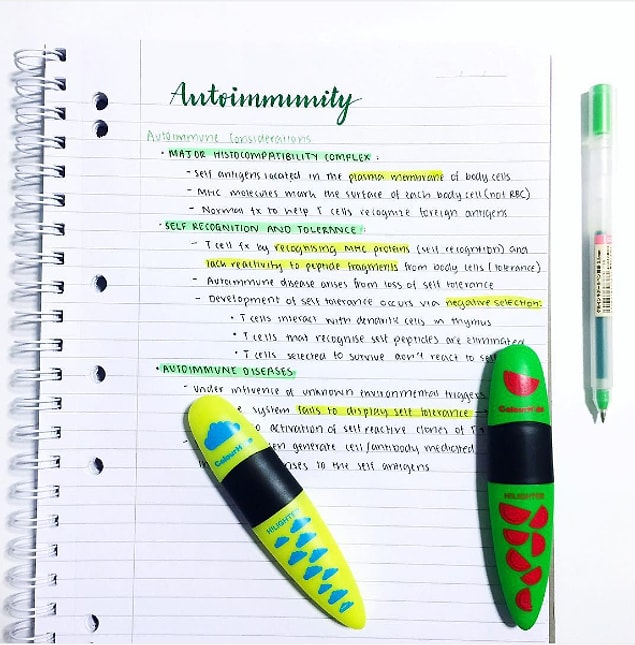 Autoimmunity
Autoimmune Considerations
· MAJOR HISTOCOMPATIBILITY COMPLEX :
- Self antigens located in the plasma membrane of body cells
- MHC molecules mark the surface of each body cell (not RBC)
- Normal fx to help T cells recognize foreign antigens
· SELF RECOGNITION AND TOLERANCE :
- T cell fx by recognising MHC proteins (self recognition) and
lack reactivity to peptide fragments from body cells (tolerance)
- Autoimmune disease arises from loss of self tolerance
- Development of self tolerance occurs via negative selection:
• T cells interact with dendritic cells in thymus
• T cells that recognise self peptides are eliminated
• T cells selected to survive don't react to self
· AUTOIMMUNE DISEASES
- Under influence of unknown environmental triggers
system fails to display self tolerance
activation of self reactive clones of T
generate cell/antibody mediated
to the self antigens
ColourHide
HILIGHTER
HILIGHTER